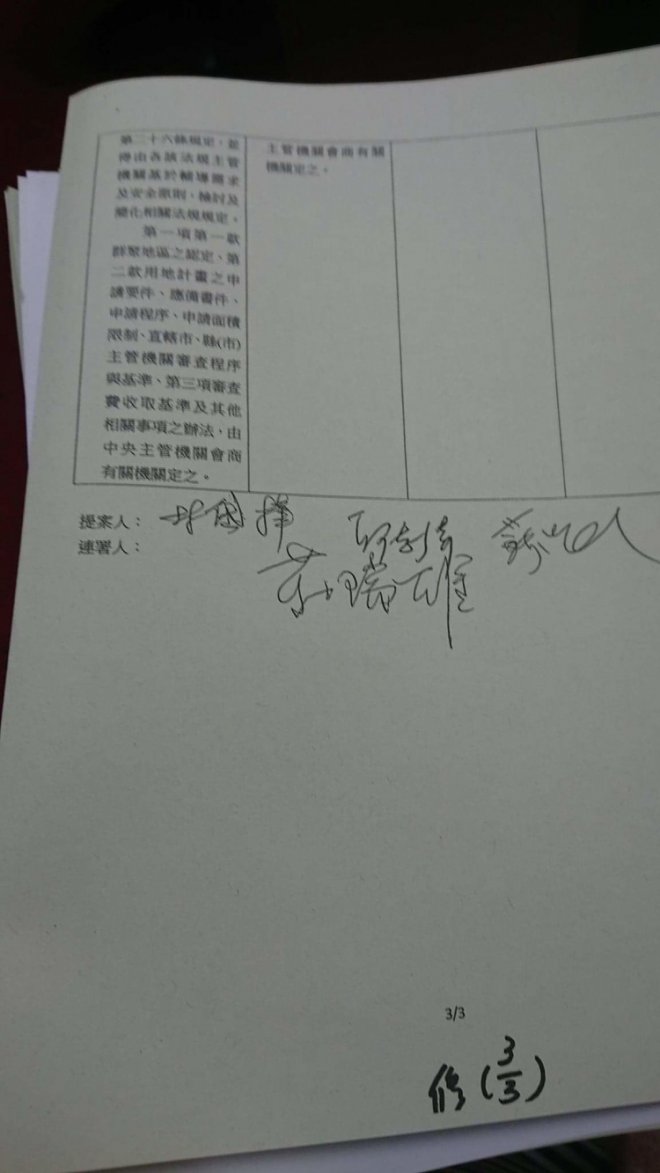 第二十六條規定，並
得由各該法規主管
機關基於輔導需求
及安全原則，檢討及
簡化相關法規規定。
第一項第一款
群聚地區之認定、第
二款用地計畫之申
請要件、應備書件、
申請程序、申請面積
限制、直轄市、縣(市)
主管機關審查程序
與基準、第三項審查
費收取基準及其他
相關事項之辦法，由
中央主管機關會商
有關機關定之。
主管機關會商有關
機關定之。
提案人：
連署人：
3/3
修(3/3)